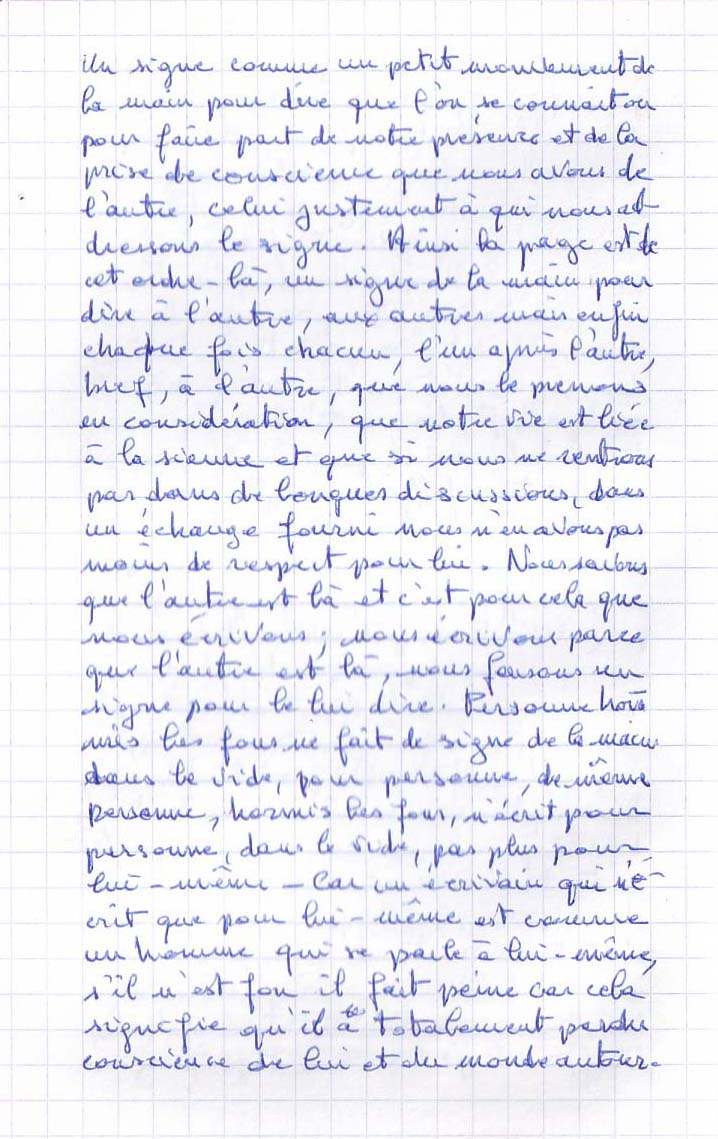 Un signe comme un petit mouvement de
la main pour dire que l'on se connaît ou
pour faire part de notre présence et de la
prise de conscience que nous avons de
l'autre, celui justement à qui nous ad-
dressons le signe. Ainsi la page est de
cet ordre-là, un signe de la main pour
dire à l'autre, aux autres mais enfin
chaque fois chacun, l'un après l'autre,
bref, à l'autre, que nous le prenons
en considération, que notre vie est liée
à la sienne et que si nous ne rentrons
pas dans de longues discussions, dans
un échange fourni nous n'en avons pas
moins de respect pour lui. Nous savons
que l'autre est là et c'est pour cela que
nous écrivons; nous écrivons parce
que l'autre est là, nous faisons un
signe pour le lui dire. Personne hor-
mis les fous ne fait de signe de la main
dans le vide, pour personne, de même
personne, hormis les fous, n'écrit pour
personne, dans le vide, pas plus pour
lui-même - Car un écrivain qui n'é-
crit que pour lui-même est comme
un homme qui se parle à lui-même,
s'il n'est fou il fait peine car cela
signifie qu'il a totalement perdu
conscience de lui et du monde autour.